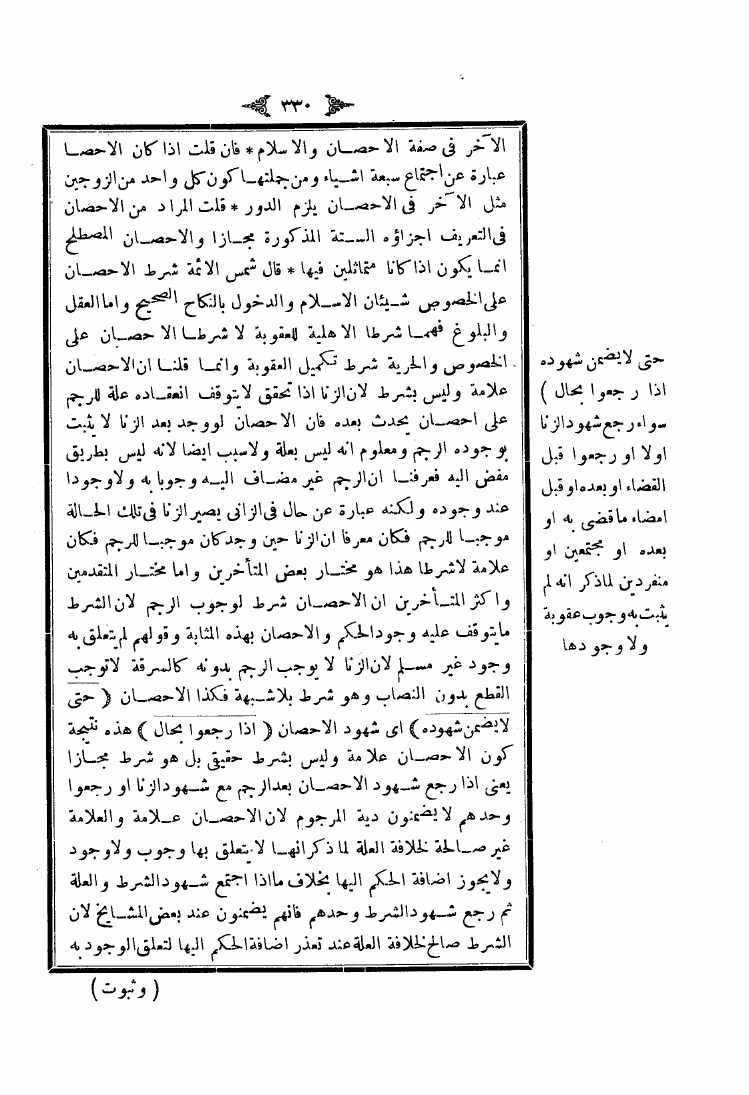 ٣٣٠
الآخر فى صفة الاحصان والاسلام * فان قلت اذا كان الاحصا
عبارة عن اجتماع سبعة اشياء ومن جملتها كون كل واحد من الزوجين
مثل الآخر فى الاحصان يلزم الدور * قلت المراد من الاحصان
فى التعريف اجزاؤه الستة المذكورة مجازا والاحصان المصطلح
انما يكون اذا كانا متماثلين فيها * قال شمس الائمة شرط الاحصان
على الخصوص شيئان الاسلام والدخول بالنكاح الصحيح واما العقل
والبلوغ فهما شرطا الاهلية للعقوبة لا شرطا الاحصان على
الخصوص والحرية شرط تكميل العقوبة وانما قلنا ان الاحصان
علامة وليس بشرط لان الزنا اذا تحقق لايتوقف انعقاده علة للرجم
على احصان يحدث بعده فان الاحصان لووجد بعد الزنا لا يثبت
بوجوده الرجم ومعلوم انه ليس بعلة ولاسبب ايضا لانه ليس بطريق
مفض اليه فعرفنا ان الرجم غير مضاف اليه وجوبا به ولاوجودا
عند وجوده ولكنه عبارة عن حال فى الزانى يصير الزنا فى تلك الحالة
موجبا للرجم فكان معرفا ان الزنا حين وجد كان موجبا للرجم فكان
علامة لاشرطا هذا هو مختار بعض المتأخرين واما مختار المتقدمين
واكثر المتأخرين ان الاحصان شرط لوجوب الرجم لان الشرط
مايتوقف عليه وجود الحكم والاحصان بهذه المثابة وقولهم لم يتعلق به
وجود غير مسلم لان الزنا لا يوجب الرجم بدونه كالسرقة لاتوجب
القطع بدون النصاب وهو شرط بلاشبهة فكذا الاحصان ( حتى
لايضمن شهوده ) اى شهود الاحصان ( اذا رجعوا بحال ) هذه نتيجة
كون الاحصان علامة وليس بشرط حقيقى بل هو شرط مجازا
يعنى اذا رجع شهود الاحصان بعد الرجم مع شهود الزنا او رجعوا
وحدهم لايضمنون دية المرجوم لان الاحصان علامة والعلامة
غير صالحة لخلافة العلة لما ذكرانها لايتعلق بها وجوب ولاوجود
ولايجوز اضافة الحكم اليها بخلاف مااذا اجتمع شهود الشرط والعلة
ثم رجع شهود الشرط وحدهم فانهم يضمنون عند بعض المشايخ لان
الشرط صالح لخلافة العلة عند تعذر اضافة الحكم اليها لتعلق الوجود به
( وثبوت )
حتى لايضمن شهوده
اذا رجعوا بحال )
سواء رجع شهود الزنا
اولا او رجعوا قبل
القضاء او بعده او قبل
امضاء ماقضى به او
بعده او مجتمعين او
منفردين لماذكر انه لم
يثبت به وجوب عقوبة
ولا وجودها